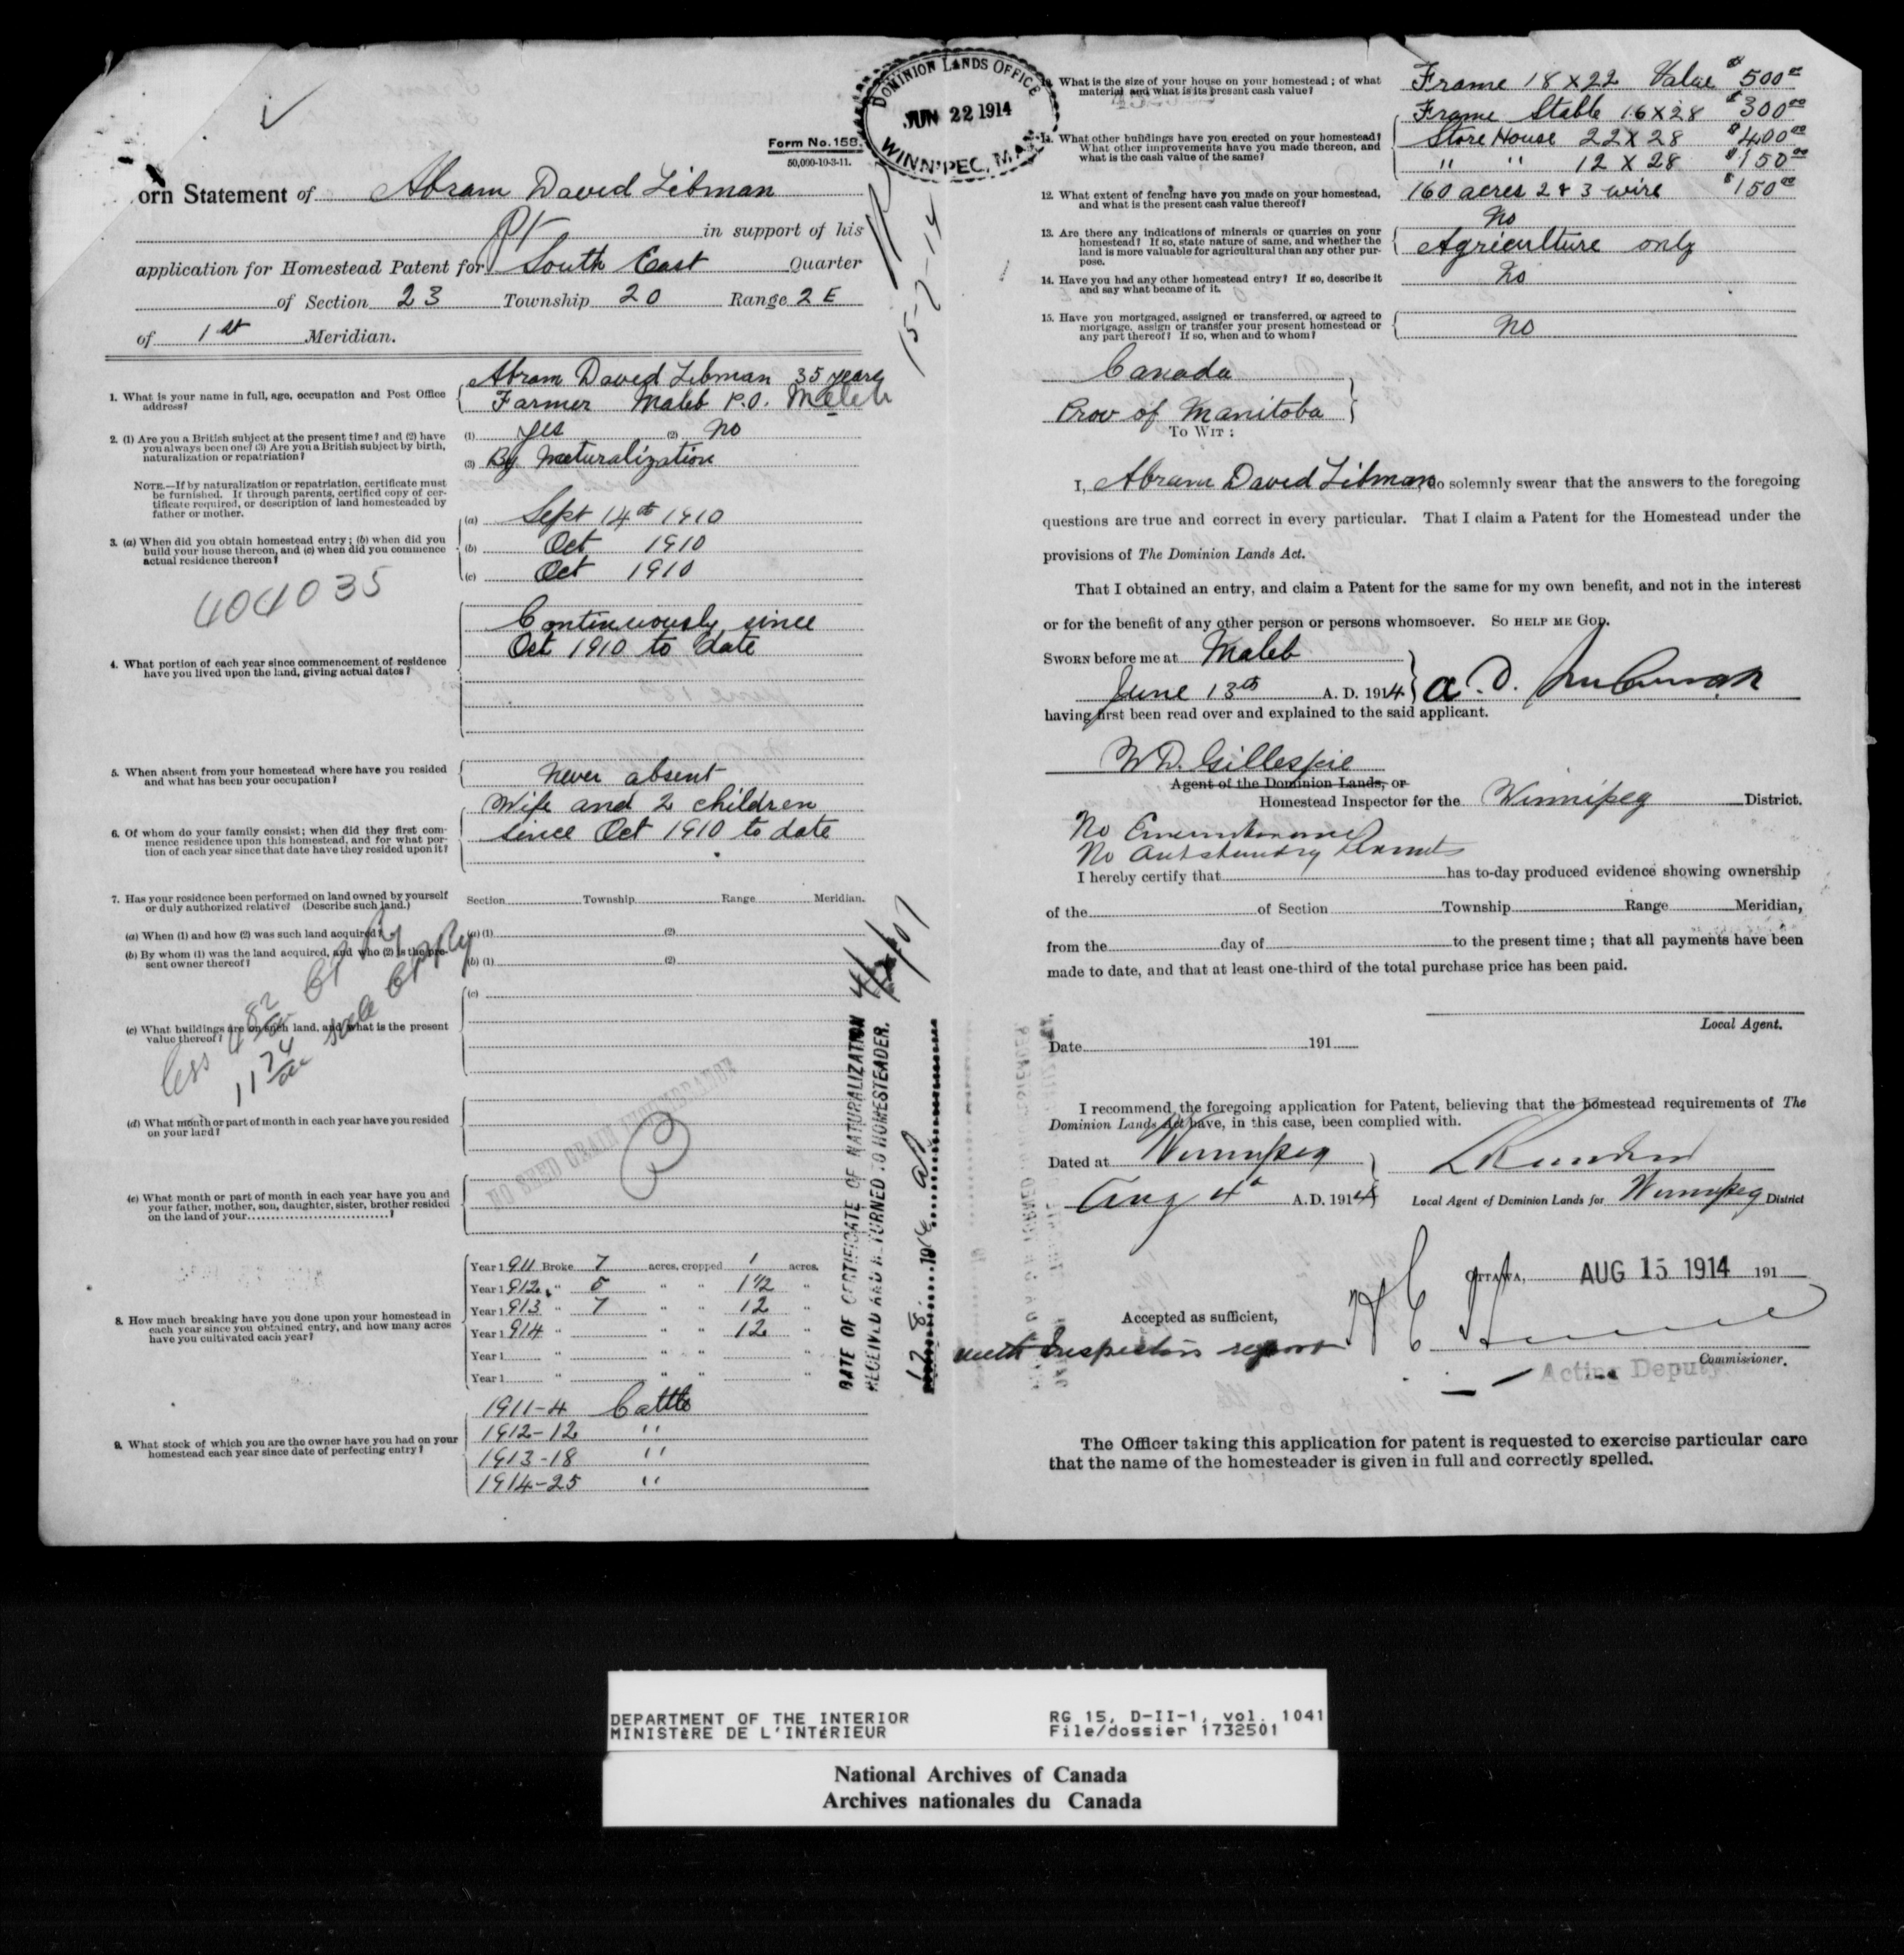 Form No. 158.
50,000-10-3-11.
orn Statement of Abram David Libman
in support of his
application for Homestead Patent for South East Quarter
of Section 23 Township 20 Range 2 E
of 1st Meridian.
1. What is your name in full, age, occupation and Post Office
address?
Abram David Libman 35 years
Farmer Maleb P.O. Maleb
2. (1) Are you a British subject at the present time? and (2) have
you always been one? (3) Are you a British subject by birth,
naturalization or repatriation?
(1) yes (2) No
(3) By Naturalization
NOTE.—If by naturalization or repatriation, certificate must
be furnished. If through parents, certified copy of cer-
tificate required, or description of land homesteaded by
father or mother.
3. (a) When did you obtain homestead entry; (b) when did you
build your house thereon, and (c) when did you commence
actual residence thereon?
(a) Sept 14th 1910
(b) Oct 1910
(c) Oct 1910
404035
4. What portion of each year since commencement of residence
have you lived upon the land, giving actual dates?
Continuously since
Oct 1910 to date
5. When absent from your homestead where have you resided
and what has been your occupation?
Never absent
6. Of whom do your family consist; when did they first com-
mence residence upon this homestead, and for what por-
tion of each year since that date have they resided upon it?
Wife and 2 children
since Oct 1910 to date
7. Has your residence been performed on land owned by yourself
or duly authorized relative? (Describe such land.)
Section Township Range Meridian.
(a) When (1) and how (2) was such land acquired?
(a) (1) (2)
(b) By whom (1) was the land acquired, and who (2) is the pre-
sent owner thereof?
(b) (1) (2)
(c) What buildings are on such land, and what is the present
value thereof?
(c)
less
sale
(d) What month or part of month in each year have you resided
on your land?
NO SEED GRAIN INCUMBRANCE
(e) What month or part of month in each year have you and
your father, mother, son, daughter, sister, brother resided
on the land of your ?
8. How much breaking have you done upon your homestead in
each year since you obtained entry, and how many acres
have you cultivated each year?
Year 1911 Broke 7 acres, cropped 1 acres.
Year 1912 " 5 " " 1 1/2 "
Year 1913 " 7 " " 12 "
Year 1914 " " " 12 "
Year 1 " " " "
Year 1 " " " "
9. What stock of which you are the owner have you had on your
homestead each year since date of perfecting entry?
1911-4 Cattle
1912-12 "
1913-18 "
1914-25 "
DATE OF CERTIFICATE OF NATURALIZATION
RECEIVED AND RETURNED TO HOMESTEADER.
DOMINION LANDS OFFICE
JUN 22 1914
WINNIPEG, MAN.
15-7-14
10. What is the size of your house on your homestead; of what
material and what is its present cash value?
Frame 18 x 22 Value $500.00
11. What other buildings have you erected on your homestead?
What other improvements have you made thereon, and
what is the cash value of the same?
Frame Stable 16 X 28 $300.00
Store House 22 X 28 $400.00
" " 12 X 28 $150.00
12. What extent of fencing have you made on your homestead,
and what is the present cash value thereof?
160 acres 2 & 3 wire $150.00
13. Are there any indications of minerals or quarries on your
homestead? If so, state nature of same, and whether the
land is more valuable for agricultural than any other pur-
pose.
No
Agriculture only
14. Have you had any other homestead entry? If so, describe it
and say what became of it.
No
15. Have you mortgaged, assigned or transferred, or agreed to
mortgage, assign or transfer your present homestead or
any part thereof? If so, when and to whom?
No
Canada
Prov of Manitoba
TO WIT:
I, Abram David Libman do solemnly swear that the answers to the foregoing
questions are true and correct in every particular. That I claim a Patent for the Homestead under the
provisions of The Dominion Lands Act.
That I obtained an entry, and claim a Patent for the same for my own benefit, and not in the interest
or for the benefit of any other person or persons whomsoever. SO HELP ME GOD.
SWORN before me at Maleb
June 13th A. D. 1914
A. D.
having first been read over and explained to the said applicant.
W D. Gillespie
Agent of the Dominion Lands, or
Homestead Inspector for the Winnipeg District.
No Encumbrance
No Outstanding
I hereby certify that has to-day produced evidence showing ownership
of the of Section Township Range Meridian,
from the day of to the present time; that all payments have been
made to date, and that at least one-third of the total purchase price has been paid.
Local Agent.
Date 191
I recommend the foregoing application for Patent, believing that the homestead requirements of The
Dominion Lands Act have, in this case, been complied with.
Dated at Winnipeg
Aug 4th A. D. 1914
Local Agent of Dominion Lands for Winnipeg District
OTTAWA, AUG 15 1914 191
Accepted as sufficient,
with Inspector's report
Commissioner.
Acting Deputy
The Officer taking this application for patent is requested to exercise particular care
that the name of the homesteader is given in full and correctly spelled.
DEPARTMENT OF THE INTERIOR
MINISTÈRE DE L'INTÉRIEUR
RG 15, D-II-1, vol. 1041
File/dossier 1732501
National Archives of Canada
Archives nationales du Canada